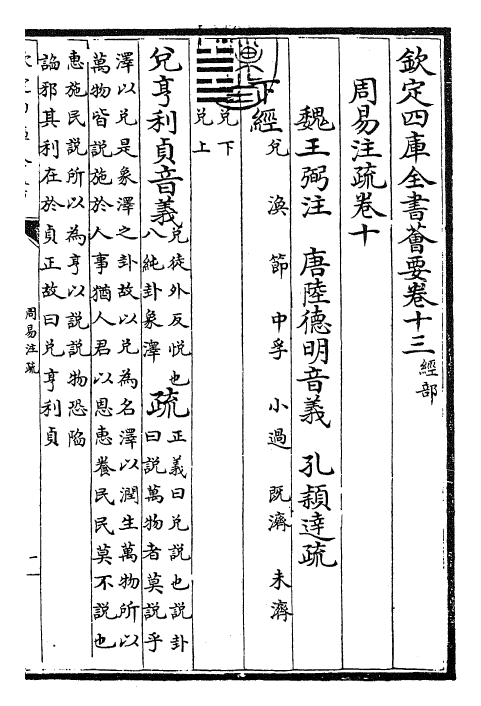 欽定四庫全書薈要卷十三 經部
周易注疏卷十
魏王弼注 唐陸德明音義 孔穎達疏
下經 兌 渙 節 中孚 小過 既濟 未濟
兌下
兌上
兌亨利貞音義
兌徒外反悅也
八純卦象澤
疏
正義曰兌說也說卦
曰說萬物者莫說乎
澤以兌是象澤之卦故以兌為名澤以潤生萬物所以
萬物皆說施於人事猶人君以恩惠養民民莫不說也
惠施民說所以為亨以說說物恐陷
諂邪其利在於貞正故曰兌亨利貞
周易注疏
一